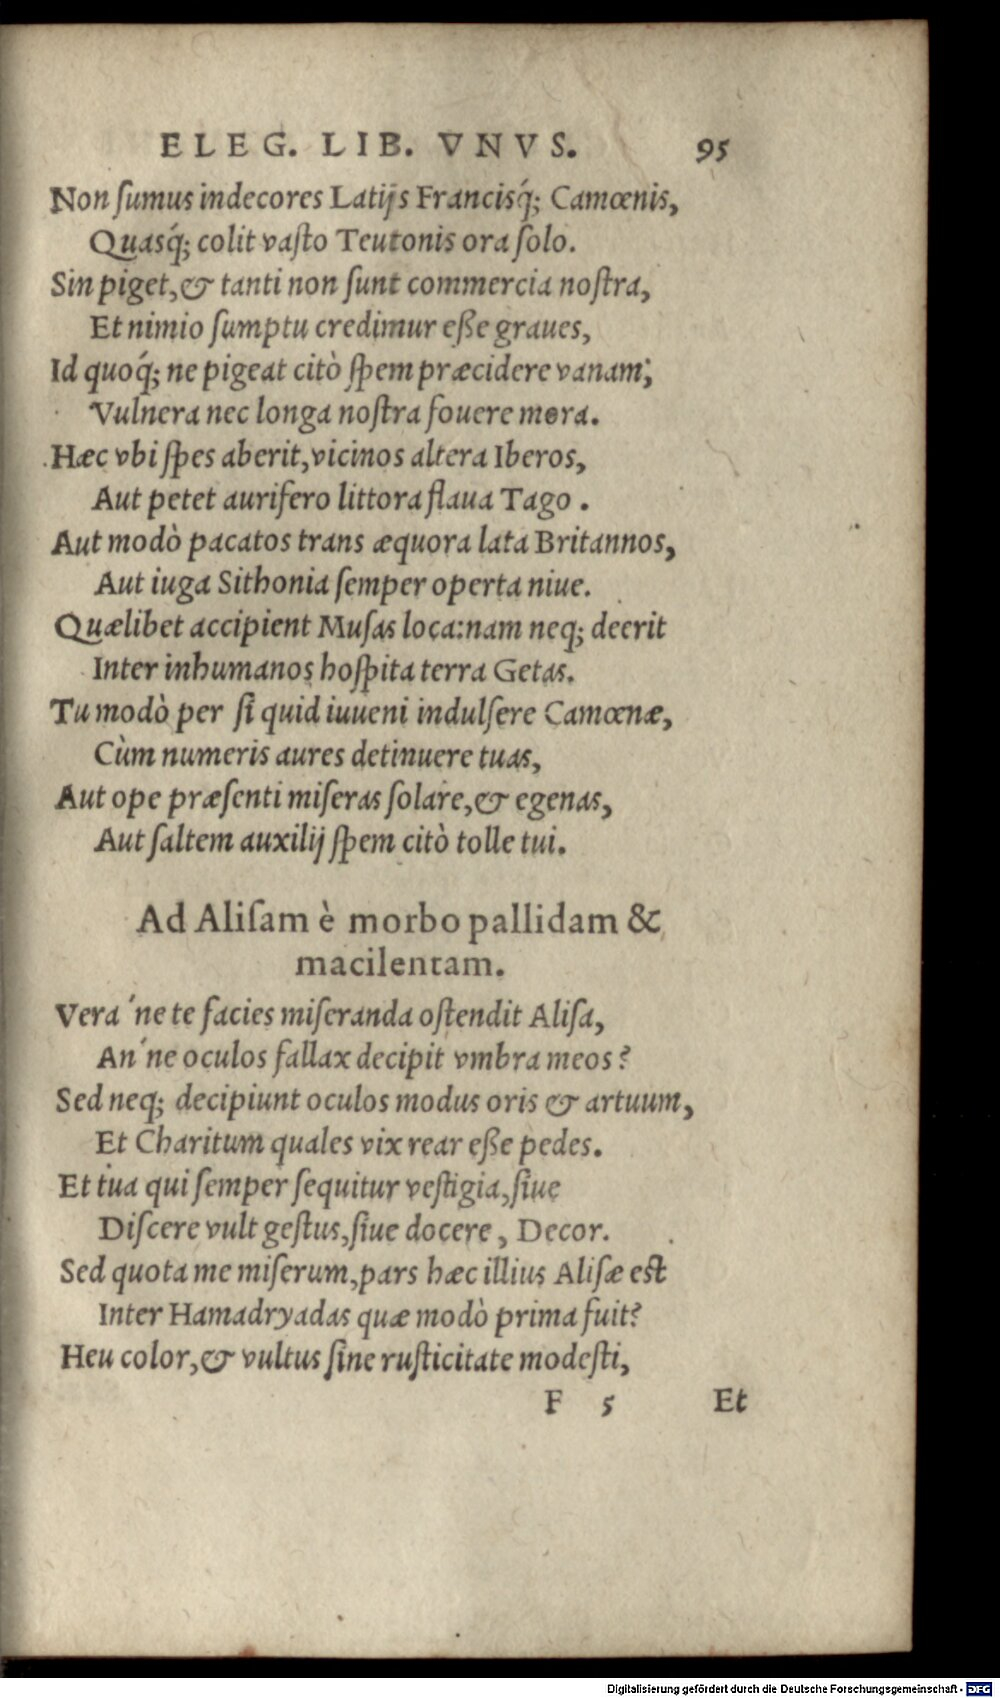 ELEG. LIB. VNVS. 95
Non ſumus indecores Latijs Francisq́; Camœnis,
Quasq́; colit vaſto Teutonis ora ſolo.
Sin piget, & tanti non ſunt commercia noſtra,
Et nimio ſumptu credimur eſſe graues,
Id quoq́; ne pigeat citò ſpem præcidere vanam;
Vulnera nec longa noſtra fouere mora.
Hæc vbi ſpes aberit, vicinos altera Iberos,
Aut petet aurifero littora flaua Tago.
Aut modò pacatos trans æquora lata Britannos,
Aut iuga Sithonia ſemper operta niue.
Quælibet accipient Muſas loca: nam neq; deerit
Inter inhumanos hoſpita terra Getas.
Tu modò per ſi quid iuueni indulſere Camœnæ,
Cùm numeris aures detinuere tuas,
Aut ope præſenti miſeras ſolare, & egenas,
Aut ſaltem auxilij ſpem citò tolle tui.
Ad Aliſam è morbo pallidam &
macilentam.
Vera'ne te facies miſeranda oſtendit Aliſa,
An'ne oculos fallax decipit vmbra meos?
Sed neq; decipiunt oculos modus oris & artuum,
Et Charitum quales vix rear eſſe pedes.
Et tua qui ſemper ſequitur veſtigia, ſiue
Diſcere vult geſtus, ſiue docere, Decor.
Sed quota me miſerum, pars hæc illius Aliſæ eſt
Inter Hamadryadas quæ modò prima fuit?
Heu color, & vultus ſine ruſticitate modeſti,
F 5 Et
Digitalisierung gefördert durch die Deutsche Forschungsgemeinschaft - DFG